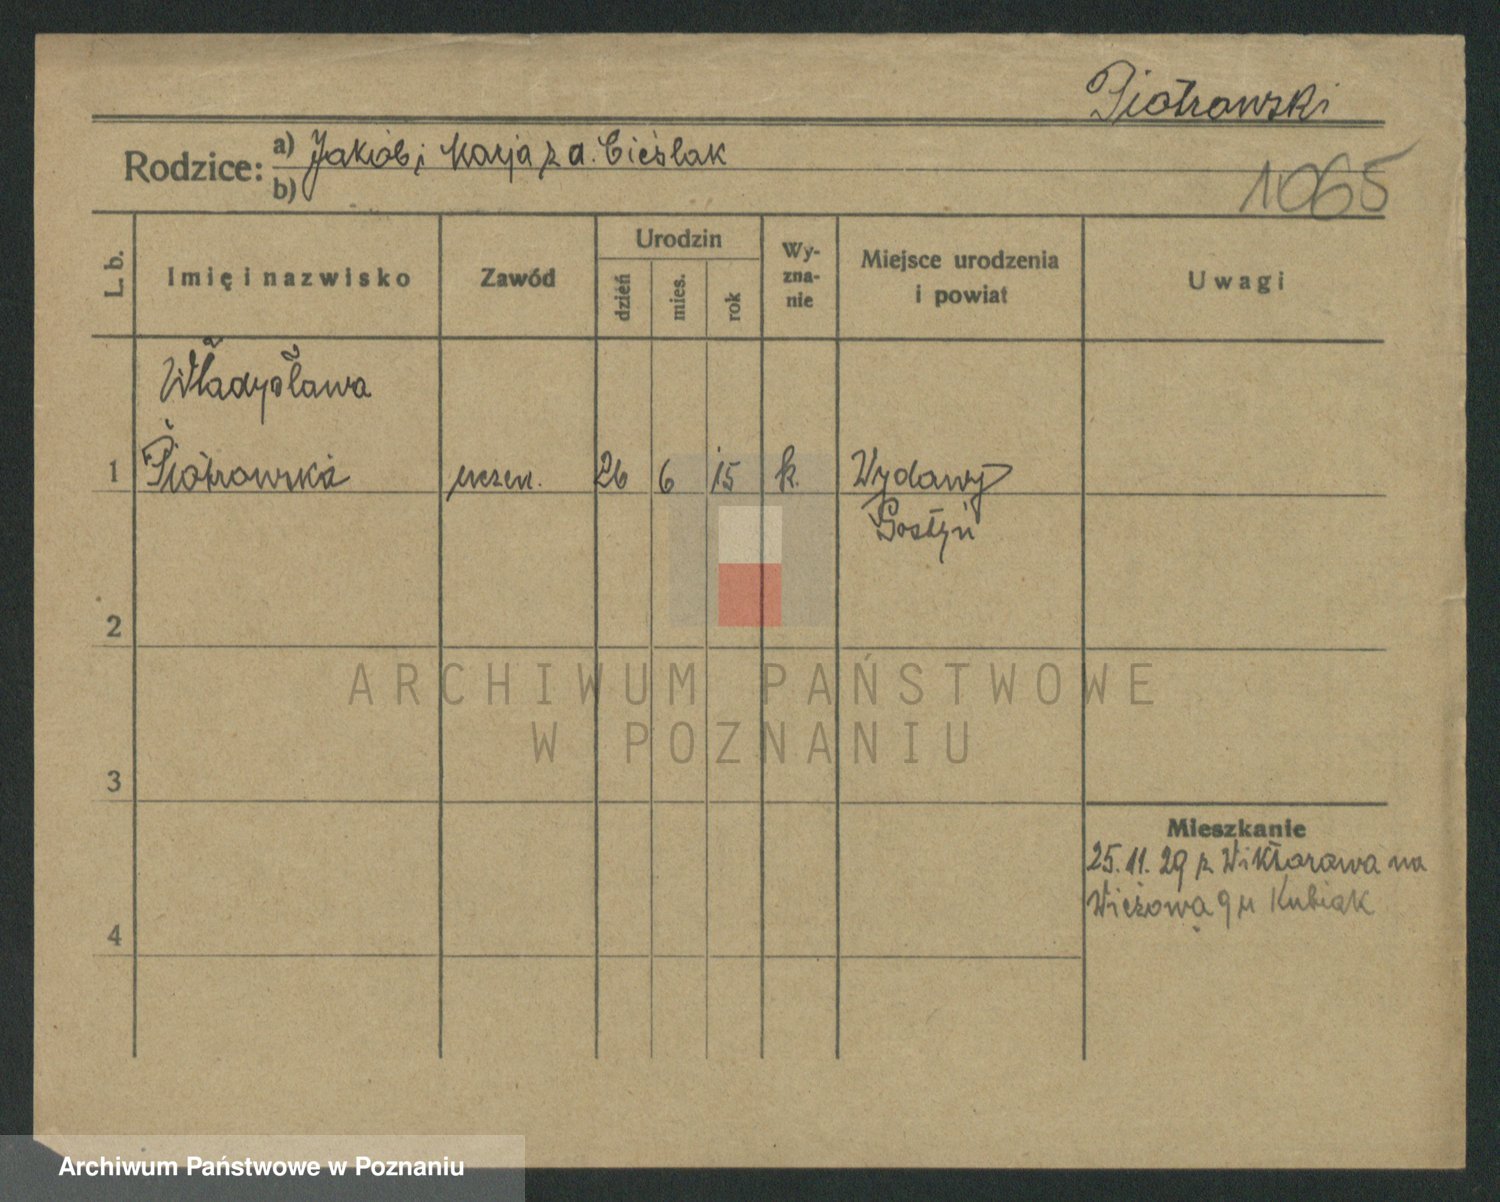 Piotrowski
Rodzice: a) Jakób i Marja z d. Cieślak
b)
1065
L. b.
Imię i nazwisko
Zawód
Urodzin
dzień
mies.
rok
Wy-
zna-
nie
Miejsce urodzenia
i powiat
Uwagi
Władysława
1 Piotrowska uczen. 26 6 15 k. Wydawy
Gostyń
2
ARCHIWUM PAŃSTWOWE
W POZNANIU
3
Mieszkanie
25. 11. 29 z Wiktorowa na
Wieżową 9 u Kubiak
4
Archiwum Państwowe w Poznaniu